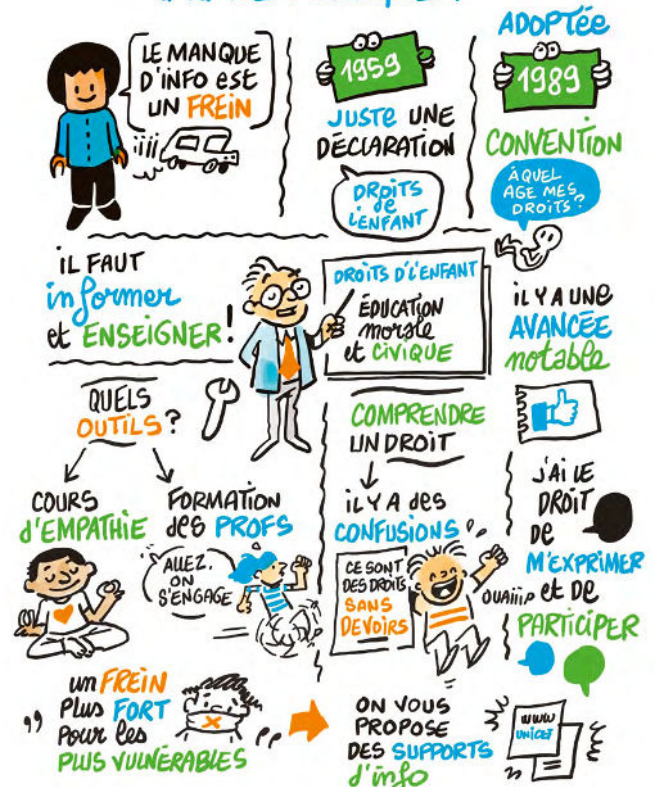 LE MANQUE
D'INFO EST
UN FREIN
1959
JUSTE UNE
DÉCLARATION
DROITS
de
L'ENFANT
ADOPTÉE
1989
CONVENTION
À QUEL
AGE MES
DROITS ?
IL FAUT
informer
et ENSEIGNER !
DROITS D'L'ENFANT
ÉDUCATION
morale
et CIVIQUE
IL Y A UNE
AVANCÉE
notable
QUELS
OUTILS ?
COURS
d'EMPATHIE
FORMATION
des PROFS
ALLEZ,
ON
S'ENGAGE
COMPRENDRE
UN DROIT
IL Y A des
CONFUSIONS
CE SONT
DES DROITS
SANS
DEVOIRS
OUAIII
J'AI LE
DROIT
DE
M'EXPRIMER
et DE
PARTICIPER
" un FREIN
Plus FORT
Pour les
PLUS VULNÉRABLES "
ON VOUS
PROPOSE
DES SUPPORTS
d'info
WWW
UNICEF